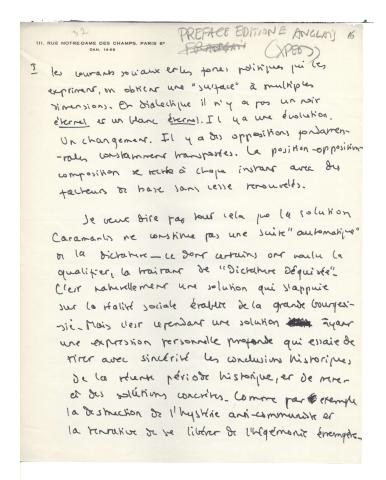 32
PREFACE EDITIONE ANGLAIS
(XPEOS)
111, RUE NOTRE-DAME DES CHAMPS. PARIS 6e
DAN. 14-69
les courants sociaux et les forces politiques qui les
expriment, on obtient une "surface" à multiples
dimensions. En dialectique il n'y a pas un noir
éternel et un blanc éternel. Il y a une évolution.
Un changement. Il y a des oppositions fondamen-
tales constamment transposées. La position-opposition-
composition se recrée à chaque instant avec des
facteurs de base sans cesse renouvelés.
Je veux dire par tout cela que la solution
Caramanlis ne constitue pas une suite "automatique"
de la dictature - ce dont certains ont voulu la
qualifier, la traitant de "Dictature Déguisée".
C'est naturellement une solution qui s'appuie
sur la réalité sociale établie de la grande bourgeoi-
sie. Mais c'est cependant une solution ayant
une expression personnelle profonde qui essaie de
tirer avec sincérité les conclusions historiques
de la récente période historique, et de
des solutions concrètes. Comme par exemple
la destruction de l'hystérie anti-communiste et
la tentative de se libérer de l'hégémonie étrangère.